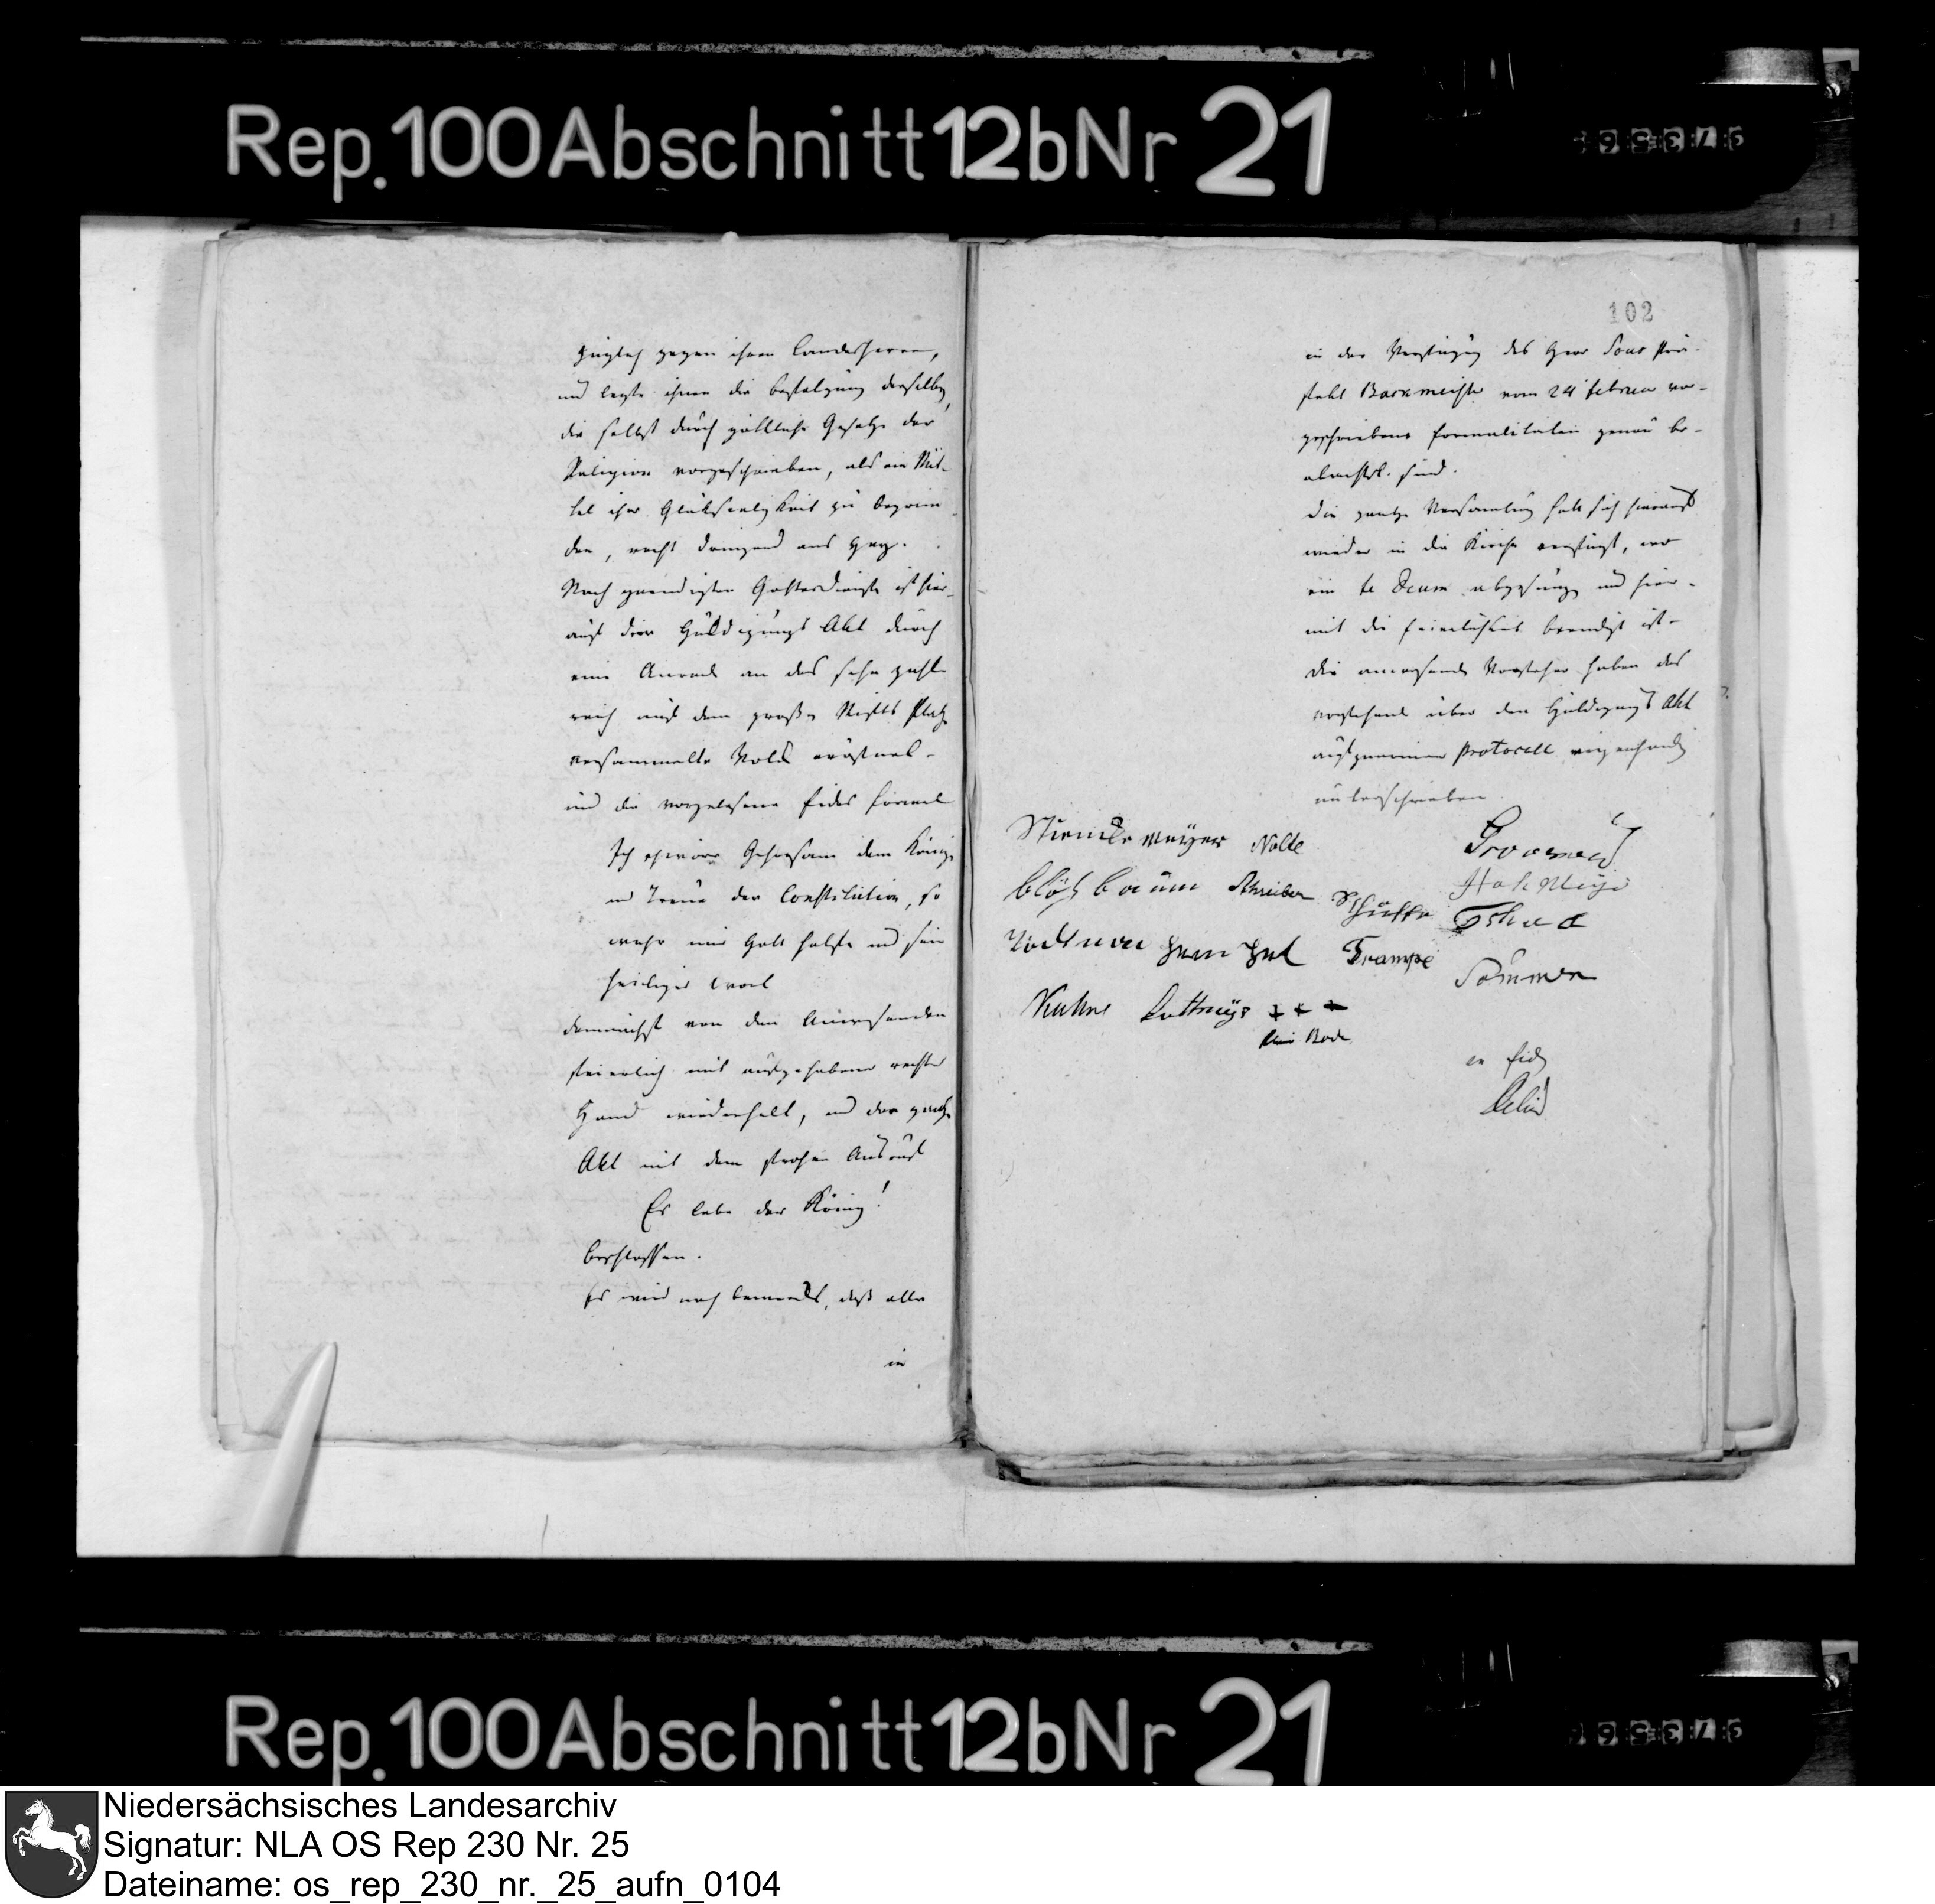 Rep. 100 Abschnitt 12b Nr 21
zugleich gegen ihren Landesherrn,
und legte ihnen die befolgung derselben,
die selbst durch göttliche Gesetze der
Religion vorgeschrieben, als ein Mit-
tel ihre Glükseeligkeit zu begrün-
den, recht dringend ans Herz.
Nach geendigten Gottesdienste ist hier-
auf der Huldigungs Akt durch
eine Anrede an das sehr zahl-
reich auf dem großen Stifts Platze
versammelte Volck eröfnet-
und die vorgelesene Eides formel
Ich schwöre Gehorsam dem Könige
und Treue der Constitution, so
wahr mir Gott helfe und sein
heiliges Wort
demnächst von den Anwesenden
feierlich mit aufgehabener rechte
Hand wiederholt, und der gantze
Akt mit dem frohen Ausruf
Es lebe der König!
beschlossen.
Es wird noch bemerckt, daß alle
in
102
in der Verfügung des Herr Sous Prä-
fekt Barkmeister vom 24 februar vor-
geschriebene formalitäten genau be-
obachtet sind.
die gantze Versamlung hat sich hierauf
wieder in die Kirche verfügt, wo
ein te Deum abgesungen und hier-
mit die feierlichkeit beendigt ist-
die anwesende Vorsteher haben das
vorstehende über den Huldigungs Akt
aufgenommene Protocoll eigenhändig
unterschrieben.
meyer Nolte
Schreiber
Trampe
+ + +
Bode
in fid
Rep. 100 Abschnitt 12b Nr 21
Niedersächsisches Landesarchiv
Signatur: NLA OS Rep 230 Nr. 25
Dateiname: os_rep_230_nr._25_aufn_0104